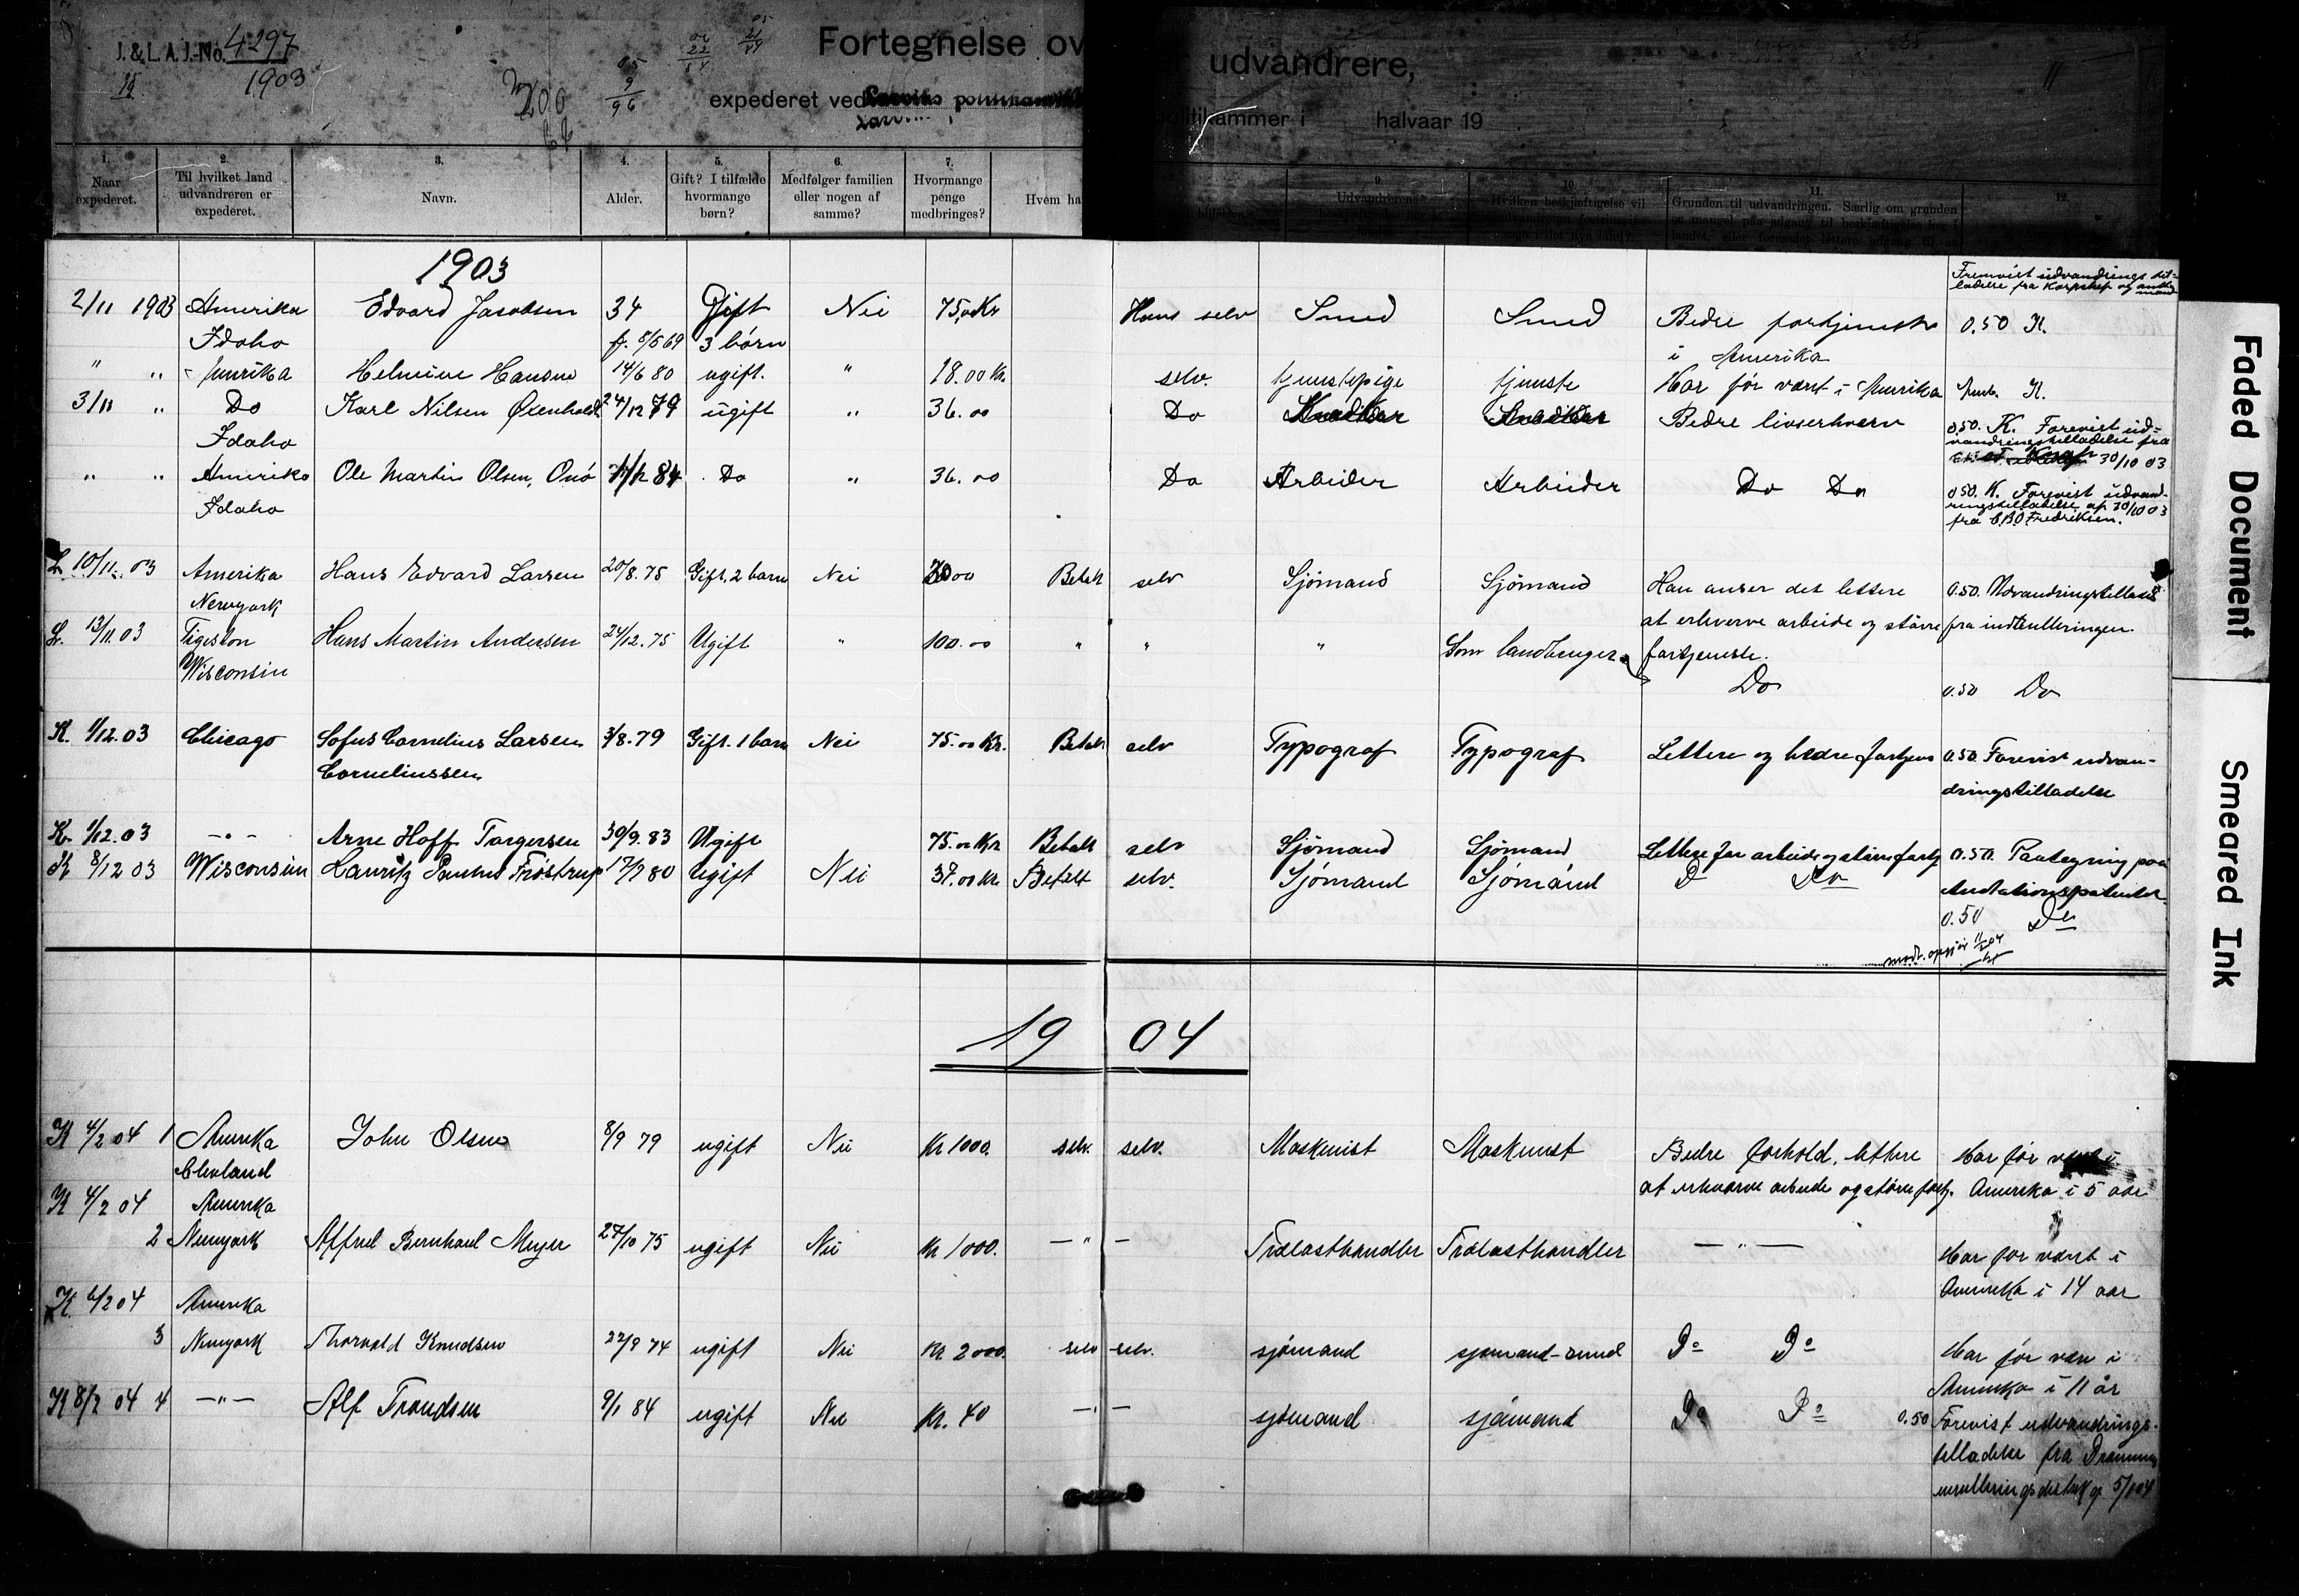 J. & L. A. J.-No. 4297
1903
Fortegnelse ov er udvandrere,
expederet ved politikammer i halvaar 19
1. Naar expederet.
2. Til hvilket land udvandreren er expederet.
3. Navn.
4. Alder.
5. Gift? I tilfælde hvormange børn?
6. Medfølger familien eller nogen af samme?
7. Hvormange penge medbringes?
Hvem ha
9. Udvandrerens
10. Hvilken beskjæftigelse vil
11. Grunden til udvandringen. Særlig om grunden
12.
1903
Fremvist udvandringstil-
ladelse fra Korpschef og amtmand
2/11 1903 Amerika Edvard Jacobsen 34 Gift Nei 75,00 Kr Hans selv Smed Smed Bedre fortjeneste 0.50 K.
Idaho f. 8/5 69 3 börn i Amerika
" " Amerika Helmine Hansen 14/6 80 ugift. " 18.00 Kr. selv. tjenestepige tjeneste Har för været i Amerika K.
3/11 " Do Karl Nilsen 24/12 79 ugift " 36.00 Do Snedker Snedker Bedre livserhverv 0.50. K. Forevist ud-
Idaho vandringstilladelse fra
30/10 03
" " Amerika Ole Martin Olsen, 84 Do " 36.00 Do Arbeider Arbeider Do Do 0.50. K. Forevist udvand-
Idaho ringstilladelse af 30/10 03
fra Fredriksen.
L. 10/11.03 Amerika Hans Edvard Larsen 20/8.75 Gift, 2 barn Nei Betalt selv Sjömand Sjömand Han anser det lettere 0.50. Udvandringstilladelse
Newyork at erhverve arbeide og större fra indrulleringen.
L. 13/11.03 Hans Martin Andersen 24/12.75 Ugift " 100.00 " " " Som landbruger fortjeneste.
Wisconsin Do 0.50 Do
K. 1/12.03 Chicago Sofus Cornelius Larsen 3/8.79 Gift. 1 barn Nei 75.00 Kr. Betalt selv Typograf Typograf Lettere og bedre fortjens 0.50. Forevist udvan-
Corneliussen dringstilladelse
K. 1/12.03 —"— Arne Hoff Torgersen 30/9.83 Ugift 75.00 Kr Betalt selv Sjömand Sjömand Lettere for arbeide og större fortj 0.50. Paategning paa
K 8/12 03 Wisconsin Lauritz Fröstrup 17/2 80 Ugift Nei 37.00 Kr. Betalt selv. Sjömand Sjömand D Do
0.50 Do
19 04
K 4/2 04 1 Amerika John Olsen 8/9 79 ugift Nei Kr 1000. selv. selv. Maskinist Maskinist Bedre forhold, lettere Har för været i
Clevland at erhverve arbeide og större fortj. Amerika i 5 aar
K 4/2 04 Amerika
2 Newyork Alfred Bernhard Meyer 27/10 75 ugift Nei Kr 1000. — " — Trælasthandler Trælasthandler — " — Har för været i
Amerika i 14 aar
K 6/2 04 Amerika
3 Newyork Thorvald Knudsen 22/9 74 ugift Nei Kr 2000. selv selv. sjömand sjömand-smed Do Do Har för være i
Amerika i 11 år
K 8/2 04 4 —"— Alf Trondsen 9/1 84 ugift Nei Kr. 40 —"— sjömand sjömand Do Do 0.50 Forevist udvandrings-
tilladelse fra Drammens
enrulleringsdistrikt 5/1 04
Faded Document
Smeared Ink